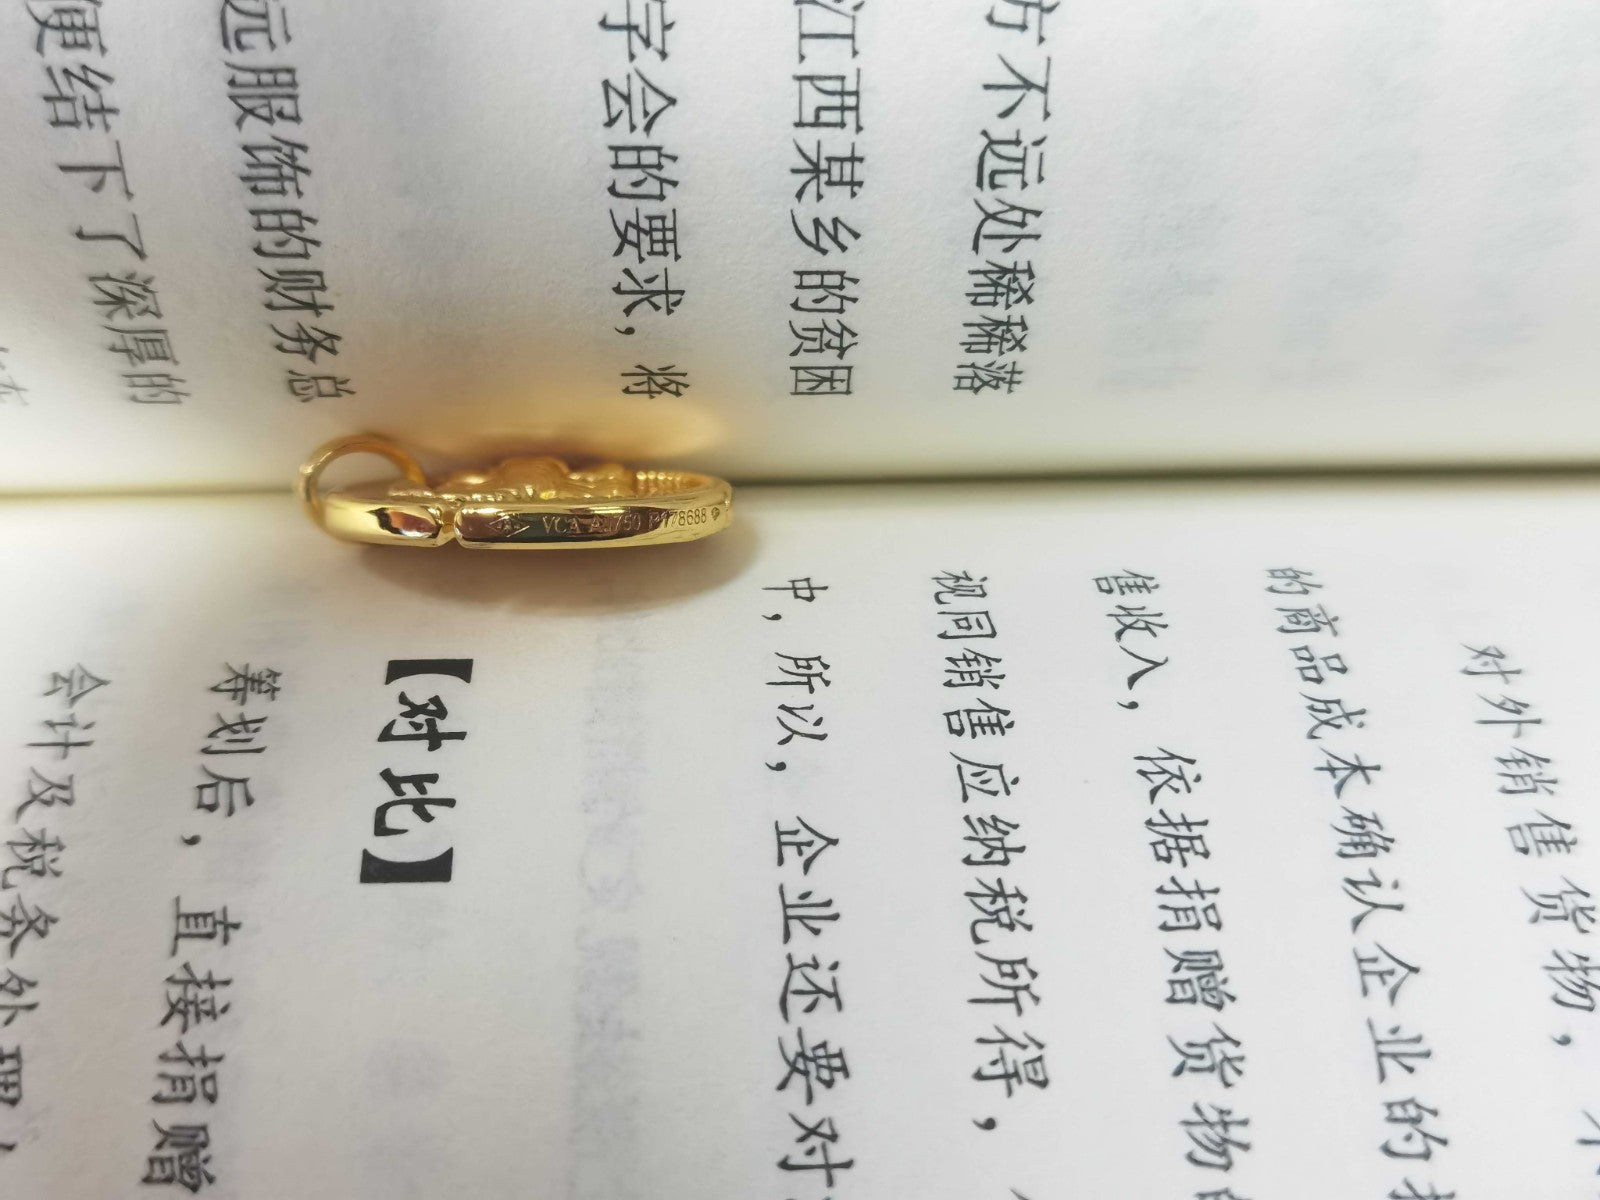 方不远处稀稀落
江西某乡的贫困
字会的要求，将
远服饰的财务总
便结下了深厚的
VCA
对外销售货物，
的商品成本确认企业的
售收入，依据捐赠货物
视同销售应纳税所得，
中，所以，企业还要对
【对比】
筹划后，直接捐赠
会计及税务处理，